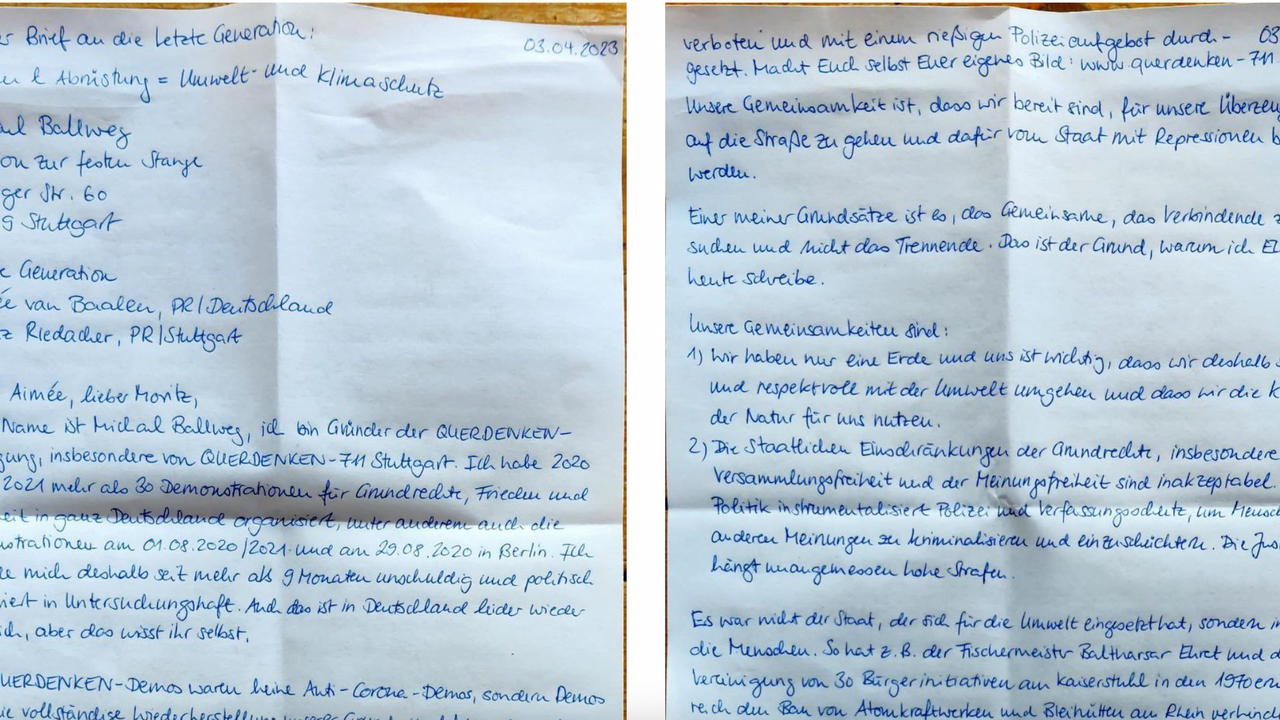 Brief an die Letzte Generation:
03.04.2023
Abrüstung = Umwelt- und Klimaschutz
Ballweg
zur festen Stange
Str. 60
Stuttgart
Generation
van Baalen, PR/Deutschland
Riedacher, PR/Stuttgart
Aimée, lieber Moritz,
Name ist Michael Ballweg, ich bin Gründer der QUERDENKEN-
insbesondere von QUERDENKEN-711 Stuttgart. Ich habe 2020
2021 mehr als 30 Demonstrationen für Grundrechte, Frieden und
in ganz Deutschland organisiert, unter anderem auch die
am 01.08.2020/2021 und am 29.08.2020 in Berlin. Ich
mich deshalb seit mehr als 9 Monaten unschuldig und politisch
in Untersuchungshaft. Auch das ist in Deutschland leider wieder
aber das wisst ihr selbst.
QUERDENKEN-Demos waren keine Anti-Corona-Demos, sondern Demos
vollständige Wiederherstellung
verboten und mit einem rießigen Polizeiaufgebot durch- 03
gesetzt. Macht Euch selbst Euer eigenes Bild: www.querdenken-711
Unsere Gemeinsamkeit ist, dass wir bereit sind, für unsere
auf die Straße zu gehen und dafür vom Staat mit Repressionen
werden.
Einer meiner Grundsätze ist es, das Gemeinsame, das Verbindende
suchen und nicht das Trennende. Das ist der Grund, warum ich
heute schreibe.
Unsere Gemeinsamkeiten sind:
1) Wir haben nur eine Erde und uns ist wichtig, dass wir deshalb
und respektvoll mit der Umwelt umgehen und dass wir die
der Natur für uns nutzen.
2) Die Staatlichen Einschränkungen der Grundrechte, insbesondere
Versammlungsfreiheit und der Meinungsfreiheit sind inakzeptabel.
Politik instrumentalisiert Polizei und Verfassungsschutz, um
anderen Meinungen zu kriminalisieren und einzuschüchtern. Die
hängt unangemessen hohe Strafen.
Es war nicht der Staat, der sich für die Umwelt eingesetzt hat, sondern
die Menschen. So hat z.B. der Fischermeister Balthasar Ehret und
Vereinigung von 30 Bürgerinitiativen am Kaiserstuhl in den 1970ern
reich den Bau von Atomkraftwerken und Bleihütten am Rhein